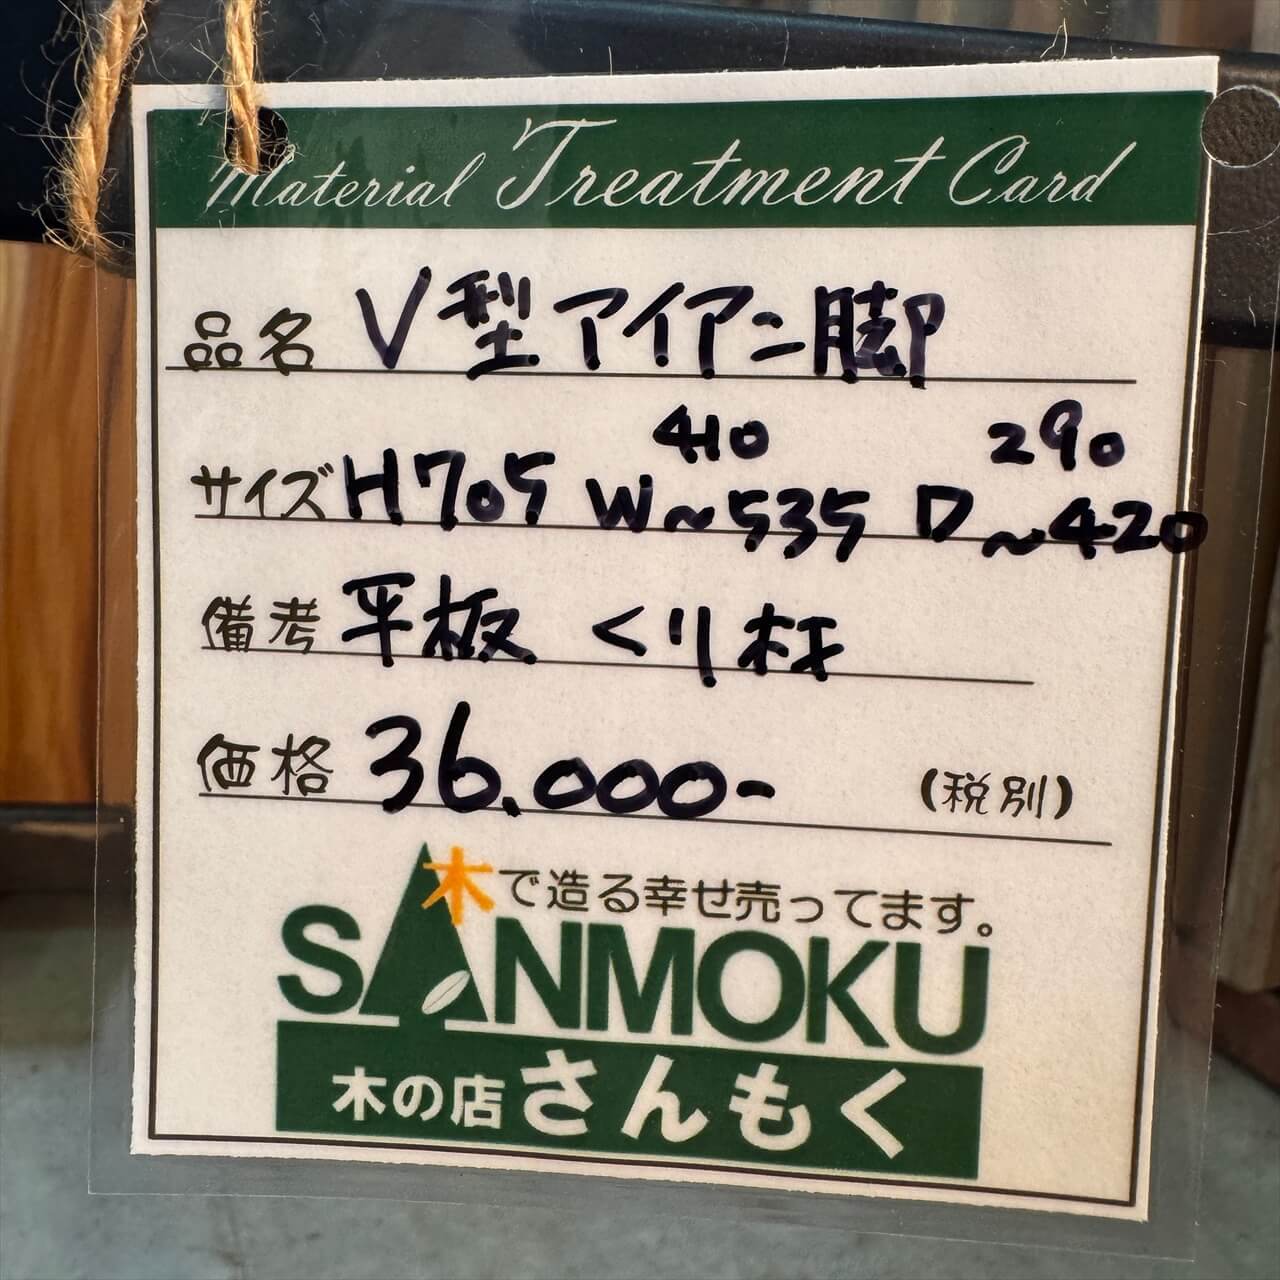 Material Treatment Card
品名 V型アイアン脚
410 290
サイズ H705 W~535 D~420
備考 平板 くり材
価格 36.000- (税別)
木で造る幸せ売ってます。
SANMOKU
木の店さんもく